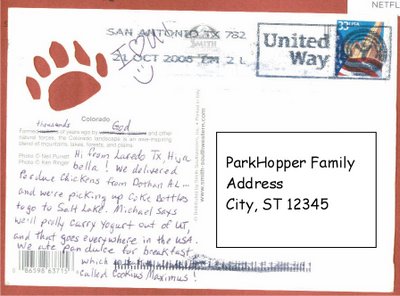 NETFL
SAN ANTONIO TX 782
21 OCT 2006 PM 2 L
I ♡ U!
United
Way
33
USA
SMITH
Colorado
thousands
God
Formed of years ago by and other
natural forces, the Colorado landscape is an awe-inspiring
blend of mountains, lakes, forests, and plains.
Photo © Neil Punett
Photo © Ken Ringer
www.smith-southwestern.com
Hi from Laredo TX, Hijm
bella! We delivered
Perdue Chickens from Dothan AL...
and we're picking up Coke Bottles
to go to Salt Lake. Michael says
we'll prolly carry Yogurt out of UT,
and that goes everywhere in the USA.
We ate pan dulce for breakfast
which
called Cookius Maximus!
0 86598 63715
ParkHopper Family
Address
City, ST 12345